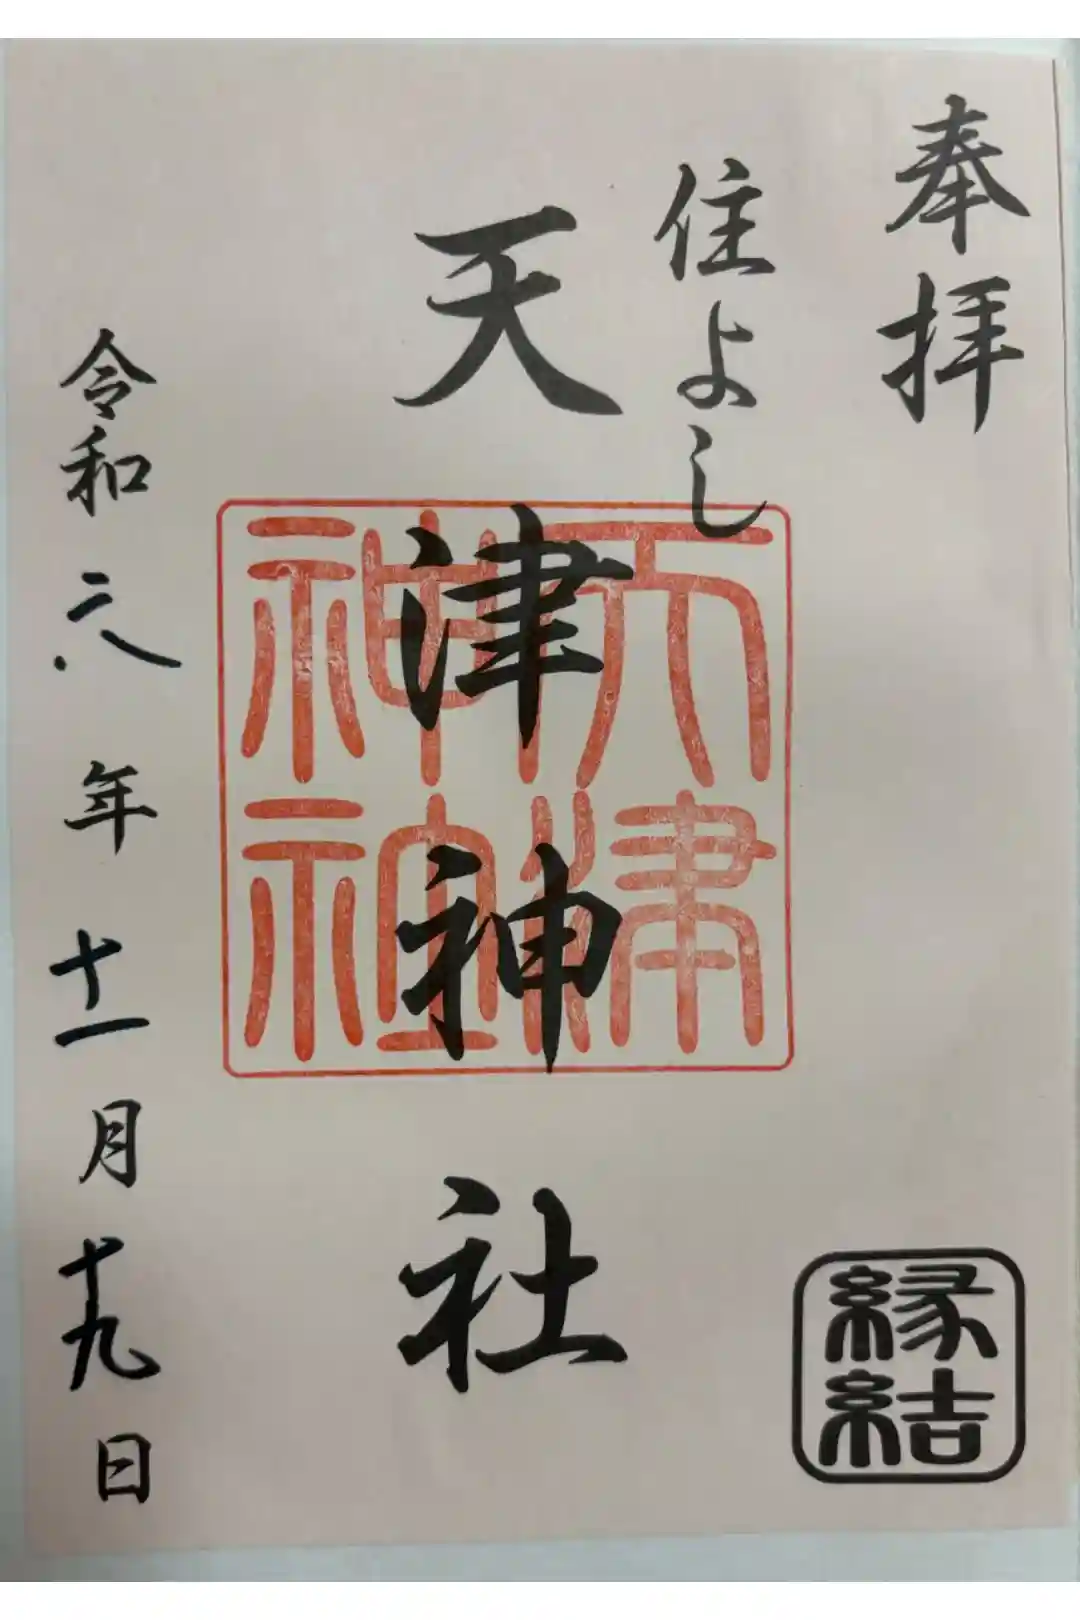 奉拝
住よし
天津神社
天津神社
縁結
令和六年十一月十九日